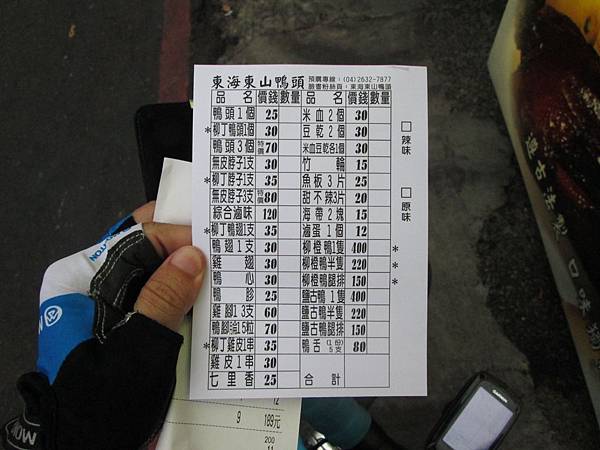 東海東山鴨頭 預購專線：(04)2632-7877
臉書粉絲頁：東海東山鴨頭
品名 價錢 數量 品名 價錢 數量
鴨頭1個 25 米血2個 30
*柳丁鴨頭1個 30 豆乾2個 30
鴨頭3個 特價70 米血豆乾各1個 30
無皮脖子1支 30 竹輪 15
*柳丁脖子1支 35 魚板3片 25
無皮脖子3支 特價80 甜不辣3片 20
綜合滷味 120 海帶2塊 15
*柳丁鴨翅1支 35 滷蛋1個 12
鴨翅1支 30 柳橙鴨1隻 400 *
雞翅 30 柳橙鴨半隻 220 *
鴨心 30 柳橙鴨腿排 150 *
鴨胗 25 鹽古鴨1隻 400
雞腳13支 60 鹽古鴨半隻 220
70 鹽古鴨腿排 150
*柳丁雞皮1串 35 鴨舌(1份)5支 80
雞皮1串 30
七里香 25 合計
□辣味
□原味
遵古法製 口味
12
9 189元
200
11
GARMIN